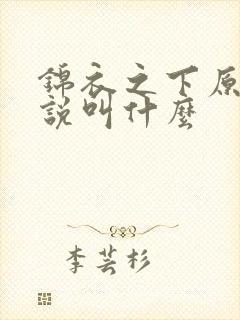 錦衣之下原
說叫什麼
李芸杉